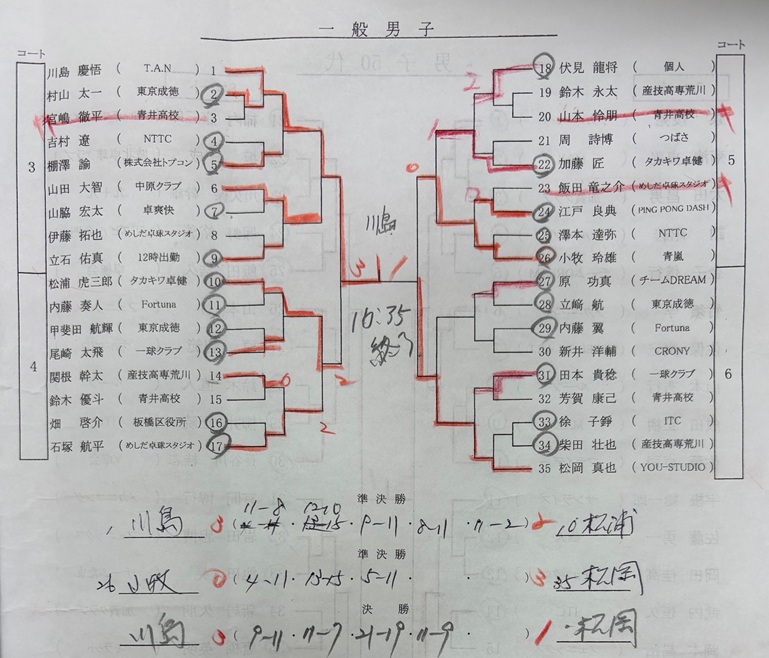 一 般 男 子
コート
3
川島 慶悟 ( T.A.N ) 1
村山 太一 ( 東京成徳 ) 2
宮嶋 徹平 ( 青井高校 ) 3
吉村 遼 ( NTTC ) 4
棚澤 諭 ( 株式会社トプコン ) 5
山田 大智 ( 中原クラブ ) 6
山脇 宏太 ( 卓爽快 ) 7
伊藤 拓也 ( めしだ卓球スタジオ ) 8
立石 佑真 ( 12時出勤 ) 9
4
松浦 虎三郎 ( タカキワ卓健 ) 10
内藤 奏人 ( Fortuna ) 11
甲斐田 航輝 ( 東京成徳 ) 12
尾崎 太飛 ( 一球クラブ ) 13
関根 幹太 ( 産技高専荒川 ) 14
鈴木 優斗 ( 青井高校 ) 15
畑 啓介 ( 板橋区役所 ) 16
石塚 航平 ( めしだ卓球スタジオ ) 17
川島
3
1
16:35
終了
0
2
2
コート
5
18 伏見 龍将 ( 個人 )
19 鈴木 永太 ( 産技高専荒川 )
20 山本 怜朋 ( 青井高校 )
21 周 詩博 ( つばさ )
22 加藤 匠 ( タカキワ卓健 )
23 飯田 竜之介 ( めしだ卓球スタジオ )
24 江戸 良典 ( PING PONG DASH )
25 澤本 達弥 ( NTTC )
26 小牧 玲雄 ( 青嵐 )
6
27 原 功真 ( チームDREAM )
28 立﨑 航 ( 東京成徳 )
29 内藤 翼 ( Fortuna )
30 新井 洋輔 ( CRONY )
31 田本 貴稔 ( 一球クラブ )
32 芳賀 康己 ( 青井高校 )
33 徐 子錚 ( ITC )
34 柴田 壮也 ( 産技高専荒川 )
35 松岡 真也 ( YOU-STUDIO )
2
1
0
準 決 勝
11-8 12-10
1 川島 3 ( · · 9-11 · 8-11 · 11-2 ) 2 10 松浦
準 決 勝
26 小牧 0 ( 4-11 · 13-15 · 5-11 · · ) 3 35 松岡
決 勝
川島 3 ( 9-11 · 11-7 · 21-19 · 11-9 · ) 1 松岡